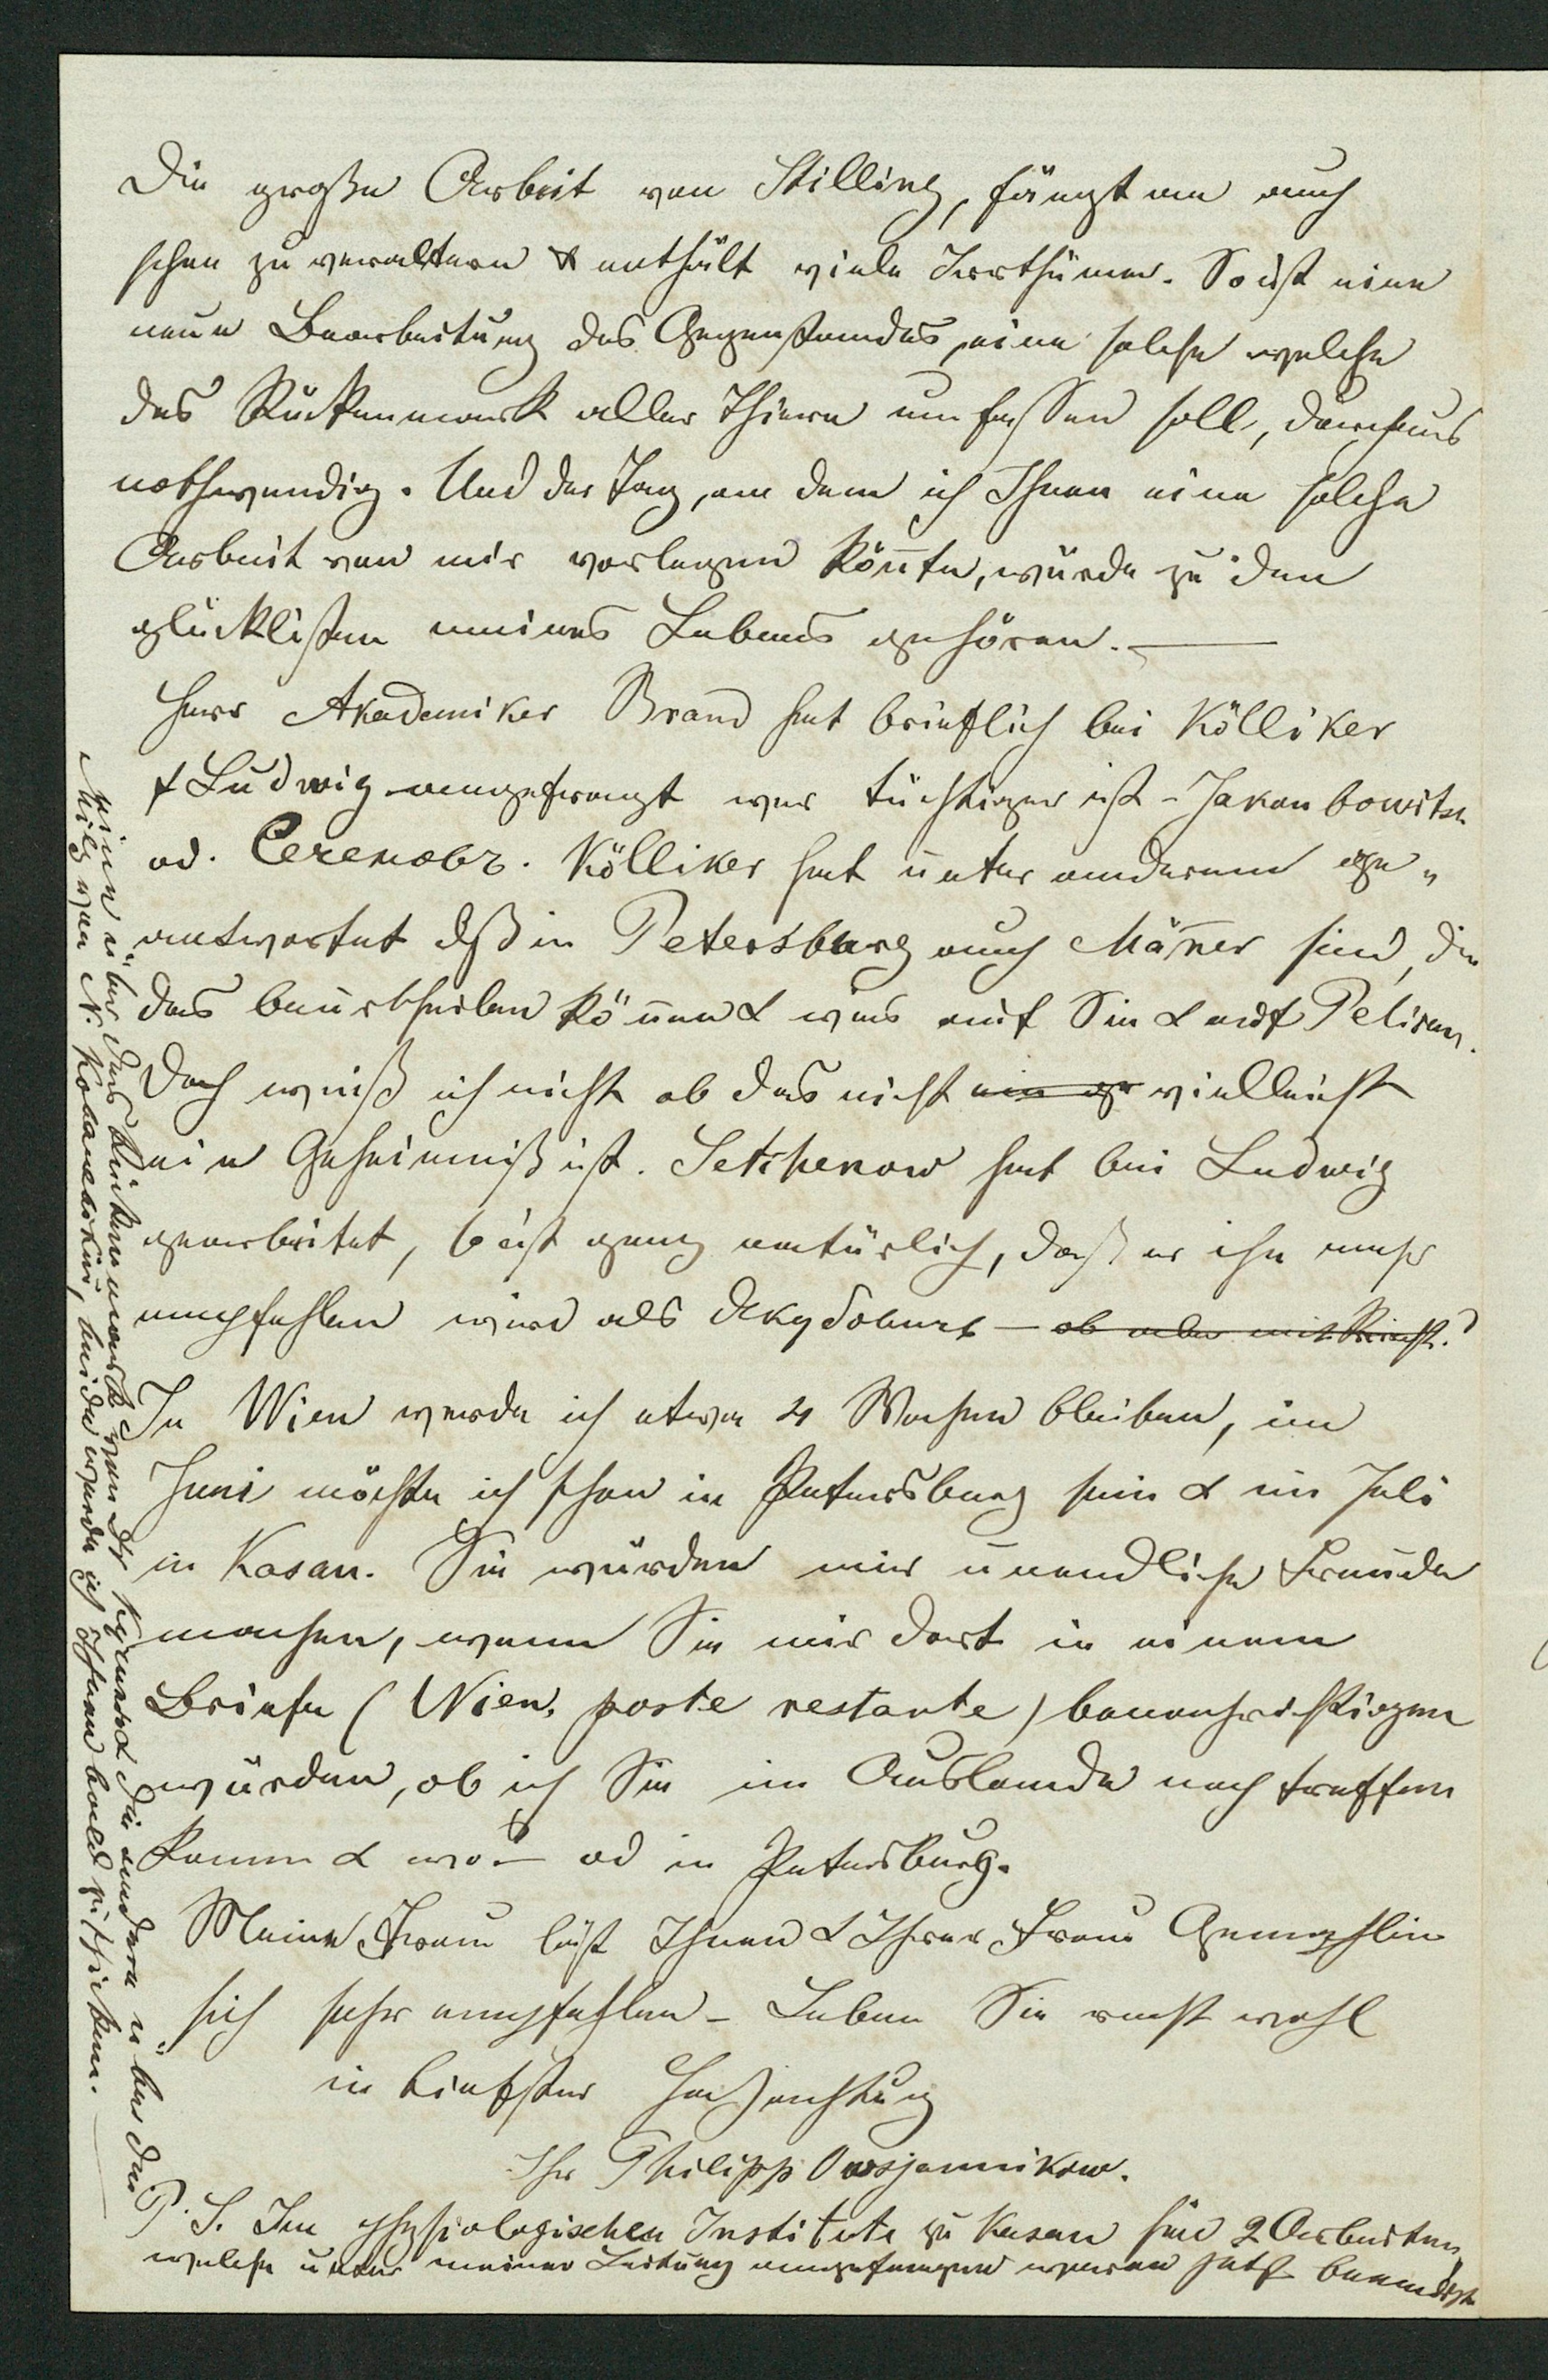 Die große Arbeit von Stilling, fängt an auch
schon zu veraltern & enthält viele Irrthümer. So ist eine
neue Bearbeitung des Gegenstandes, eine solche welche
das Rückenmark aller Thiere umfassen soll, durchaus
nothwendig. Und der Tag, an dem ich Ihnen eine solche
Arbeit von mir vorlegen kön̄te, würde zu den
glücklisten meines Lebens gehören. —
Herr Akademiker Brand hat brieflich bei Kölliker
& Ludwig angefragt wer tüchtiger ist - Jakoubowitsch
od. Сеченовъ. Kölliker hat unter anderem ge„
antwortet dß in Petersburg auch Män̄er sind, die
das beurtheilen kön̄en & wies auf Sie & auf Pelikan.
Doch weiß ich nicht ob das nicht ein ge vielleicht
ein Geheimniß ist. Setschenow hat bei Ludwig
gearbeitet, es ist ganz natürlich, daß er ihn mehr
empfehlen wird als Якубовичъ — ob aber mit Recht?
In Wien werde ich etwa 4 Wochen bleiben, im
Juni möchte ich schon in Petersburg sein & im Juli
in Kasan. Sie würden mir unendliche Freude
machen, wenn Sie mir dort in einem
Briefe (Wien, poste restante) benachrichtigen
würden, ob ich Sie im Auslande noch treffen
kann & wo — od in Petersburg.
Meine Frau läßt Ihnen & Ihrer Frau Gemahlin
sich sehr empfehlen - Leben Sie recht wohl
in tiefster Hochachtung
Ihr Philipp Owsjannikow.
P. S. Im physiologischen Institute zu Kasan sind 2 Arbeiten,
welche unter meiner Leitung angefangen waren jetzt beendigt
eine über das Rückenmark von & die andere über die
Milz von N. Kowalewsky, beide werde ich Ihnen bald zuschicken. —